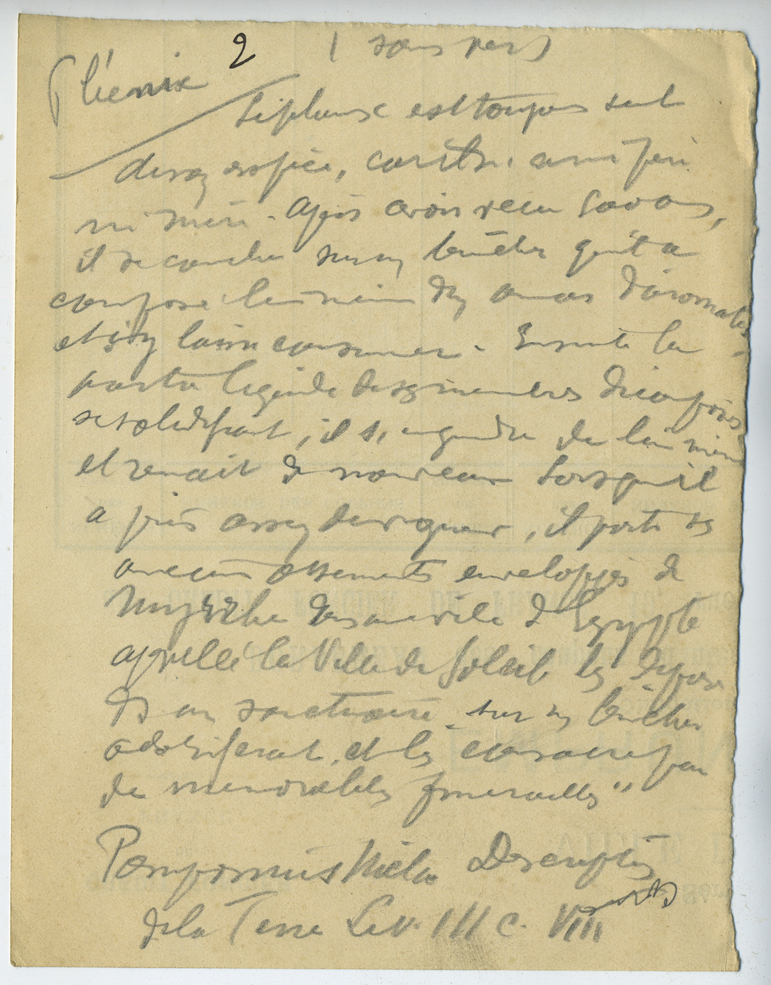 Phénix 2 (sans vers)
Le phénix est toujours seul
de son espèce, car il n'a ni père
ni mère. Après avoir vécu 500 ans,
il se couche sur un bûcher qu'il a
composé lui-même d'un amas d'aromates
et s'y laisse consumer. Ensuite la
partie liquide de ses membres décomposés
se solidifiant, il s'engendre de lui-même
et renait de nouveau. Lorsqu'il
a pris assez de vigueur, il porte ses
anciens ossements enveloppés de
myrrhe dans une ville d'Egypte
appellée la Ville du Soleil les dépose
ds un sanctuaire sur un bûcher
odoriférant, et les consacre par
de mémorables funerailles"
Pomponius Mela Description
de la Terre Liv. III c. VIII